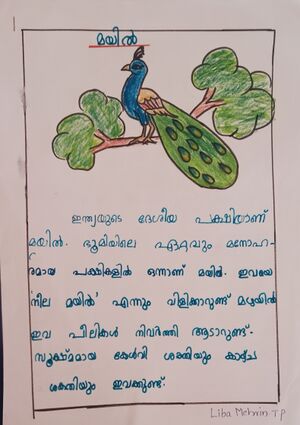 1
മയിൽ
ഇന്ത്യയുടെ ദേശീയ പക്ഷിയാണ്
മയിൽ. ഭൂമിയിലെ ഏറ്റവും മനോഹ-
രമായ പക്ഷികളിൽ ഒന്നാണ് മയിൽ. ഇവയെ
'നീല മയിൽ' എന്നും വിളിക്കാറുണ്ട് മഴയിൽ
ഇവ പീലികൾ നിവർത്തി ആടാറുണ്ട്.
സൂക്ഷ്മമായ കേൾവി ശക്തിയും കാഴ്ച
ശക്തിയും ഇവക്കുണ്ട്.
Liba Mehrin T P